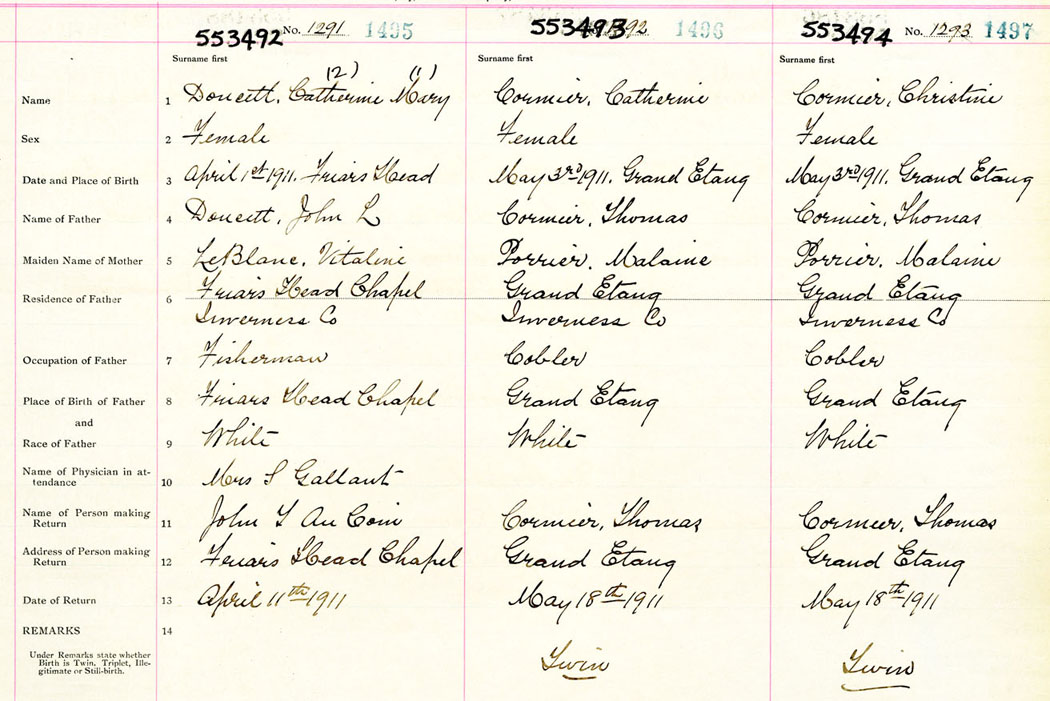 553492 No. 1291 1495 553493 1292 1496 553494 No. 1293 1497
Surname first Surname first Surname first
(2) (1)
Name 1 Doucett, Catherine Mary Cormier, Catherine Cormier, Christine
Sex 2 Female Female Female
Date and Place of Birth 3 April 1st 1911. Friars Head May 3rd 1911. Grand Etang May 3rd 1911. Grand Etang
Name of Father 4 Doucett, John L Cormier, Thomas Cormier, Thomas
Maiden Name of Mother 5 LeBlanc, Vitaline Porrier, Malaine Porrier, Malaine
Residence of Father 6 Friars Head Chapel Grand Etang Grand Etang
Inverness Co Inverness Co Inverness Co
Occupation of Father 7 Fisherman Cobler Cobler
Place of Birth of Father 8 Friars Head Chapel Grand Etang Grand Etang
and
Race of Father 9 White White White
Name of Physician in at-
tendance 10 Mrs S Gallant
Name of Person making
Return 11 John T Au Coin Cormier, Thomas Cormier, Thomas
Address of Person making
Return 12 Friars Head Chapel Grand Etang Grand Etang
Date of Return 13 April 11th 1911 May 18th 1911 May 18th 1911
REMARKS 14
Under Remarks state whether
Birth is Twin, Triplet, Ille-
gitimate or Still-birth.
Twin Twin